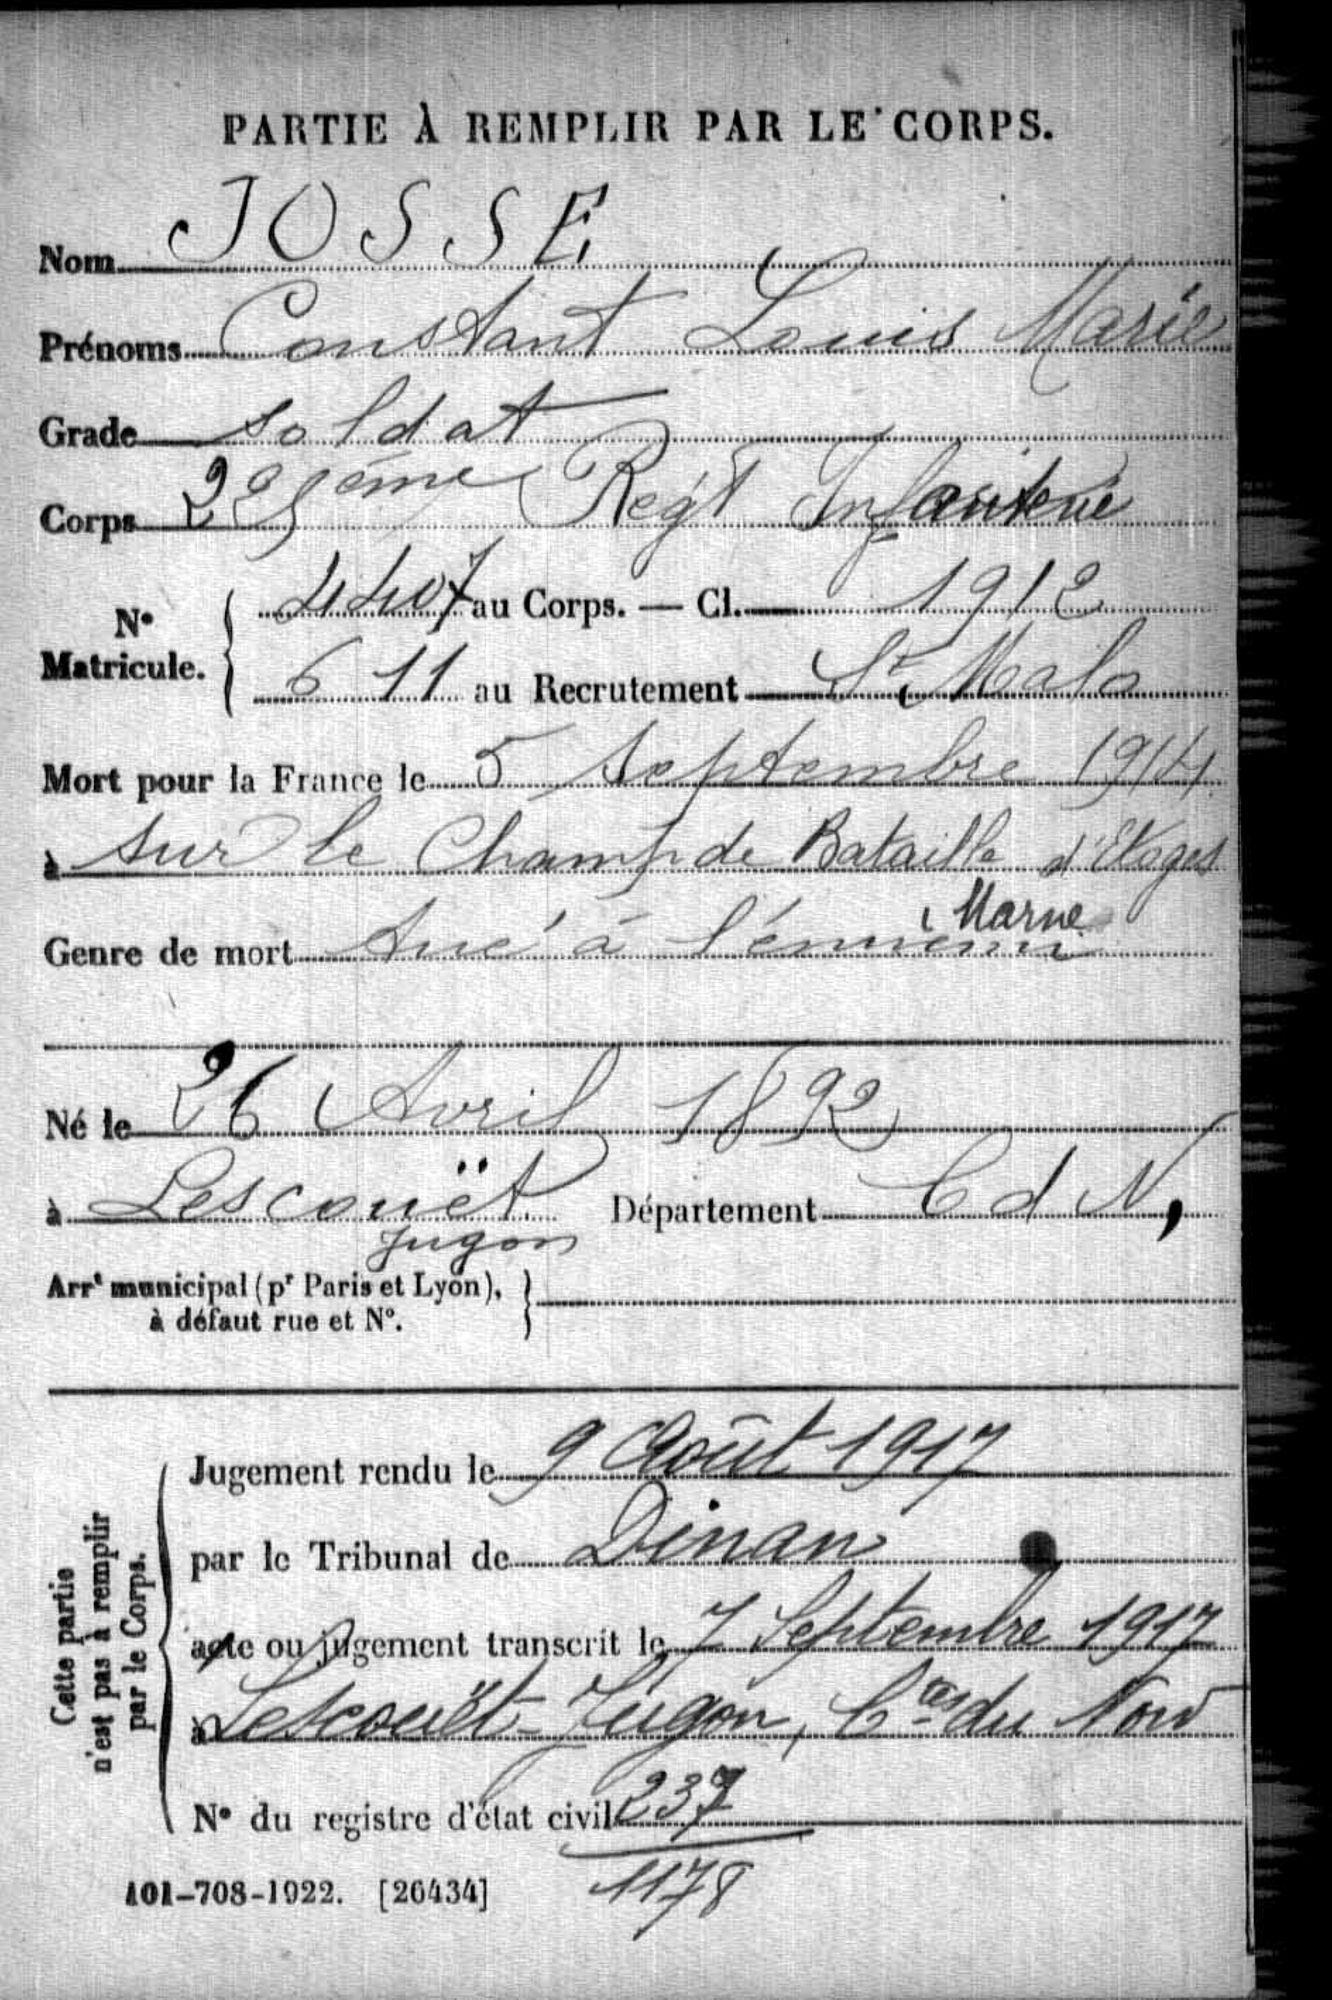 PARTIE À REMPLIR PAR LE CORPS.
Nom JOSSE
Prénoms Constant Louis Marie
Grade soldat
Corps 225ème Régt Infanterie
N° Matricule. 4407 au Corps. — Cl. 1912
611 au Recrutement St Malo
Mort pour la France le 5 septembre 1914
à sur le Champ de Bataille d'Etoges
Marne
Genre de mort tué à l'ennemi
Né le 26 Avril 1892
à Lescouët Département C d N,
Jugon
Arrt municipal (pr Paris et Lyon),
à défaut rue et N°.
Cette partie n'est pas à remplir par le Corps.
Jugement rendu le 9 Août 1917
par le Tribunal de Dinan
acte ou jugement transcrit le 7 Septembre 1917
à Lescouët-Jugon, Ctes du Nord
N° du registre d'état civil
1178
101-708-1922. [26434]